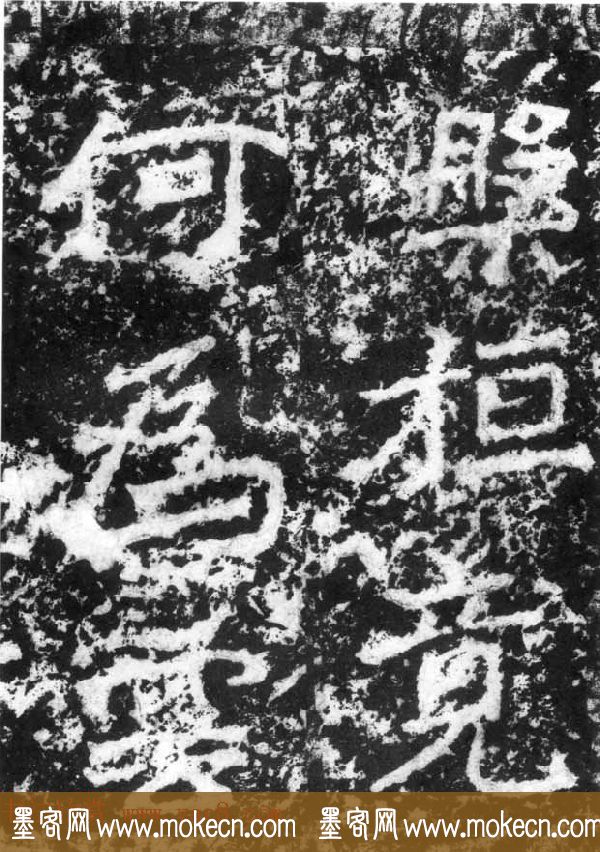 槃桓竟
何為雲
墨客网 www.mokecn.com 墨客网 www.mokecn.com